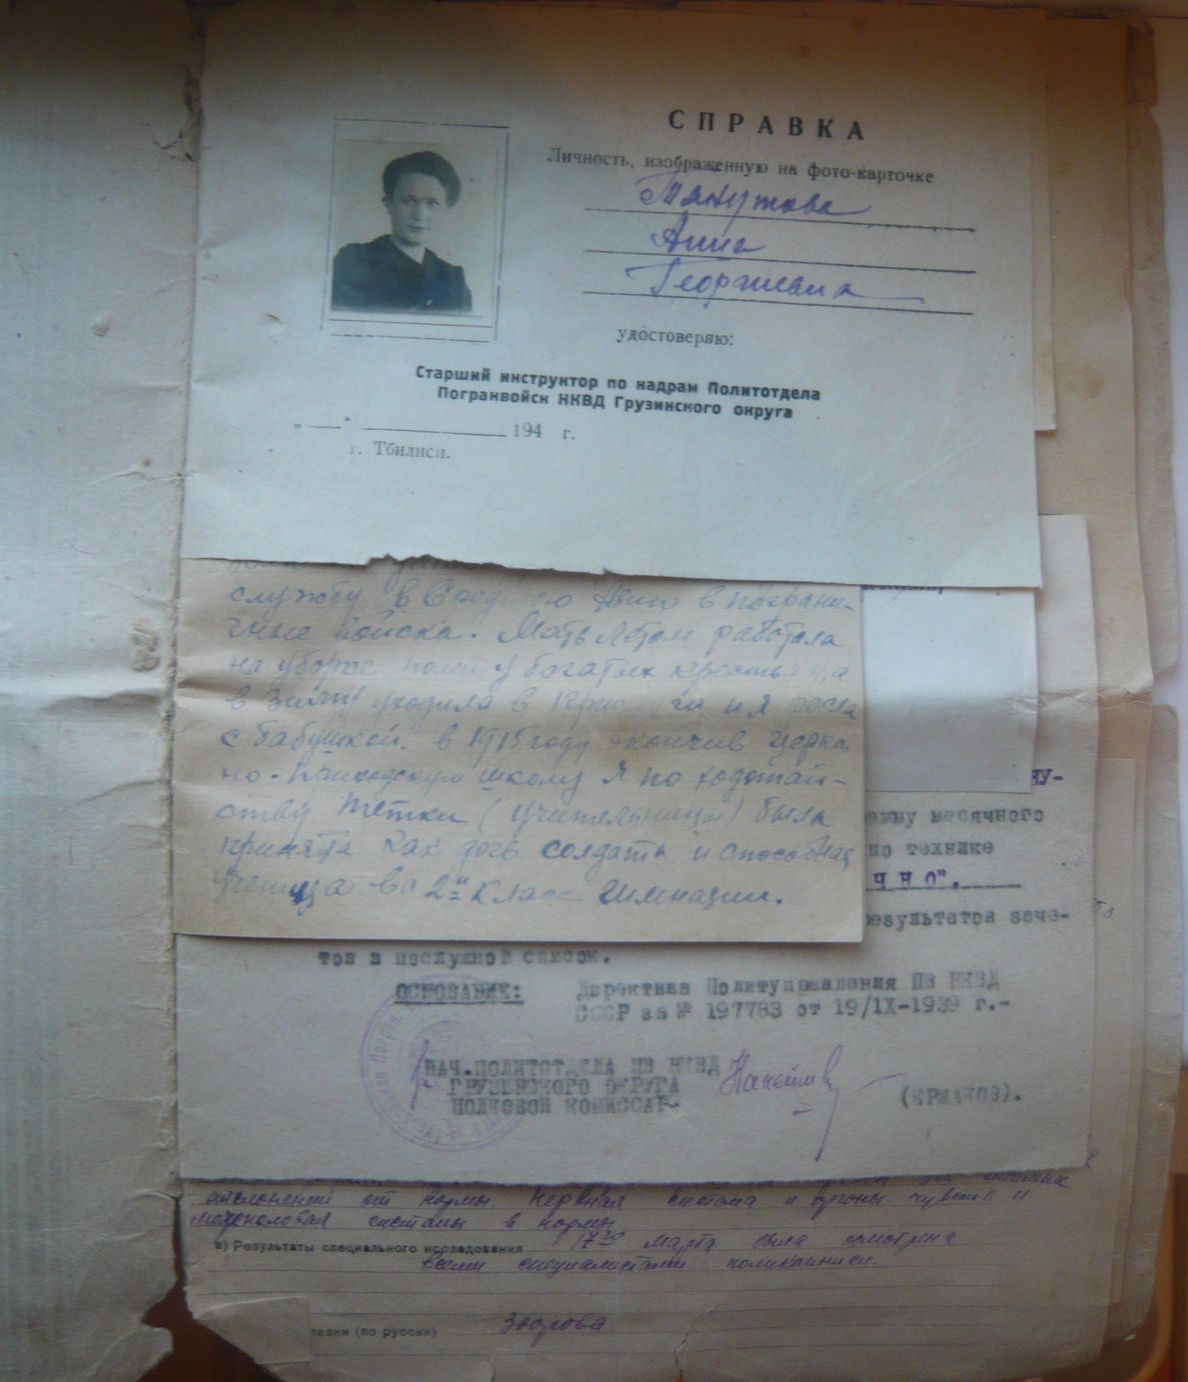 СПРАВКА
Личность, изображенную на фото-карточке
Анна
Георгиевна
удостоверяю:
Старший инструктор по кадрам Политотдела
Погранвойск НКВД Грузинского округа
"___" ___ 194 г.
г. Тбилиси.
службу в Среднюю Азию в пограни-
чные войска. Мать летом работала
на уборке полей у богатых крестьян, а
в зиму уходила в и я росла
с бабушкой. в 1915 году окончив церков
но-приходскую школу я по ходатай-
ству тётки (учительницы) была
принята как дочь солдата и способная
ученица во 2й класс гимназии.
НУ-
месячного
по технике
ЧНО".
результатов заче-
тов в послужной список.
ОСНОВАНИЕ: Директива Политуправления ПВ НКВД
СССР за № 197783 от 19/IX-1939 г.-
НАЧ.ПОЛИТОТДЕЛА ПВ НКВД
ГРУЗИНСКОГО ОКРУГА
ПОЛКОВОЙ КОМИССАР-
(ЕРМАКОВ).
отклонений от нормы нервная система и органы чувств и
мочеполовая системы в норме
в) Результаты специального исследования 17го марта была смотрена
всеми специалистами поликлиники.
лезни (по русски) Здорова